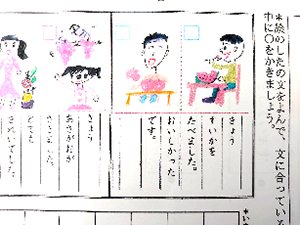 *絵のしたの文をよんで、文に合っている
中に○をかきましょう。
きょう
すいかを
たべました。
おいしかった
です。
きょう
あさがおが
さきました。
とても
きれいでした。